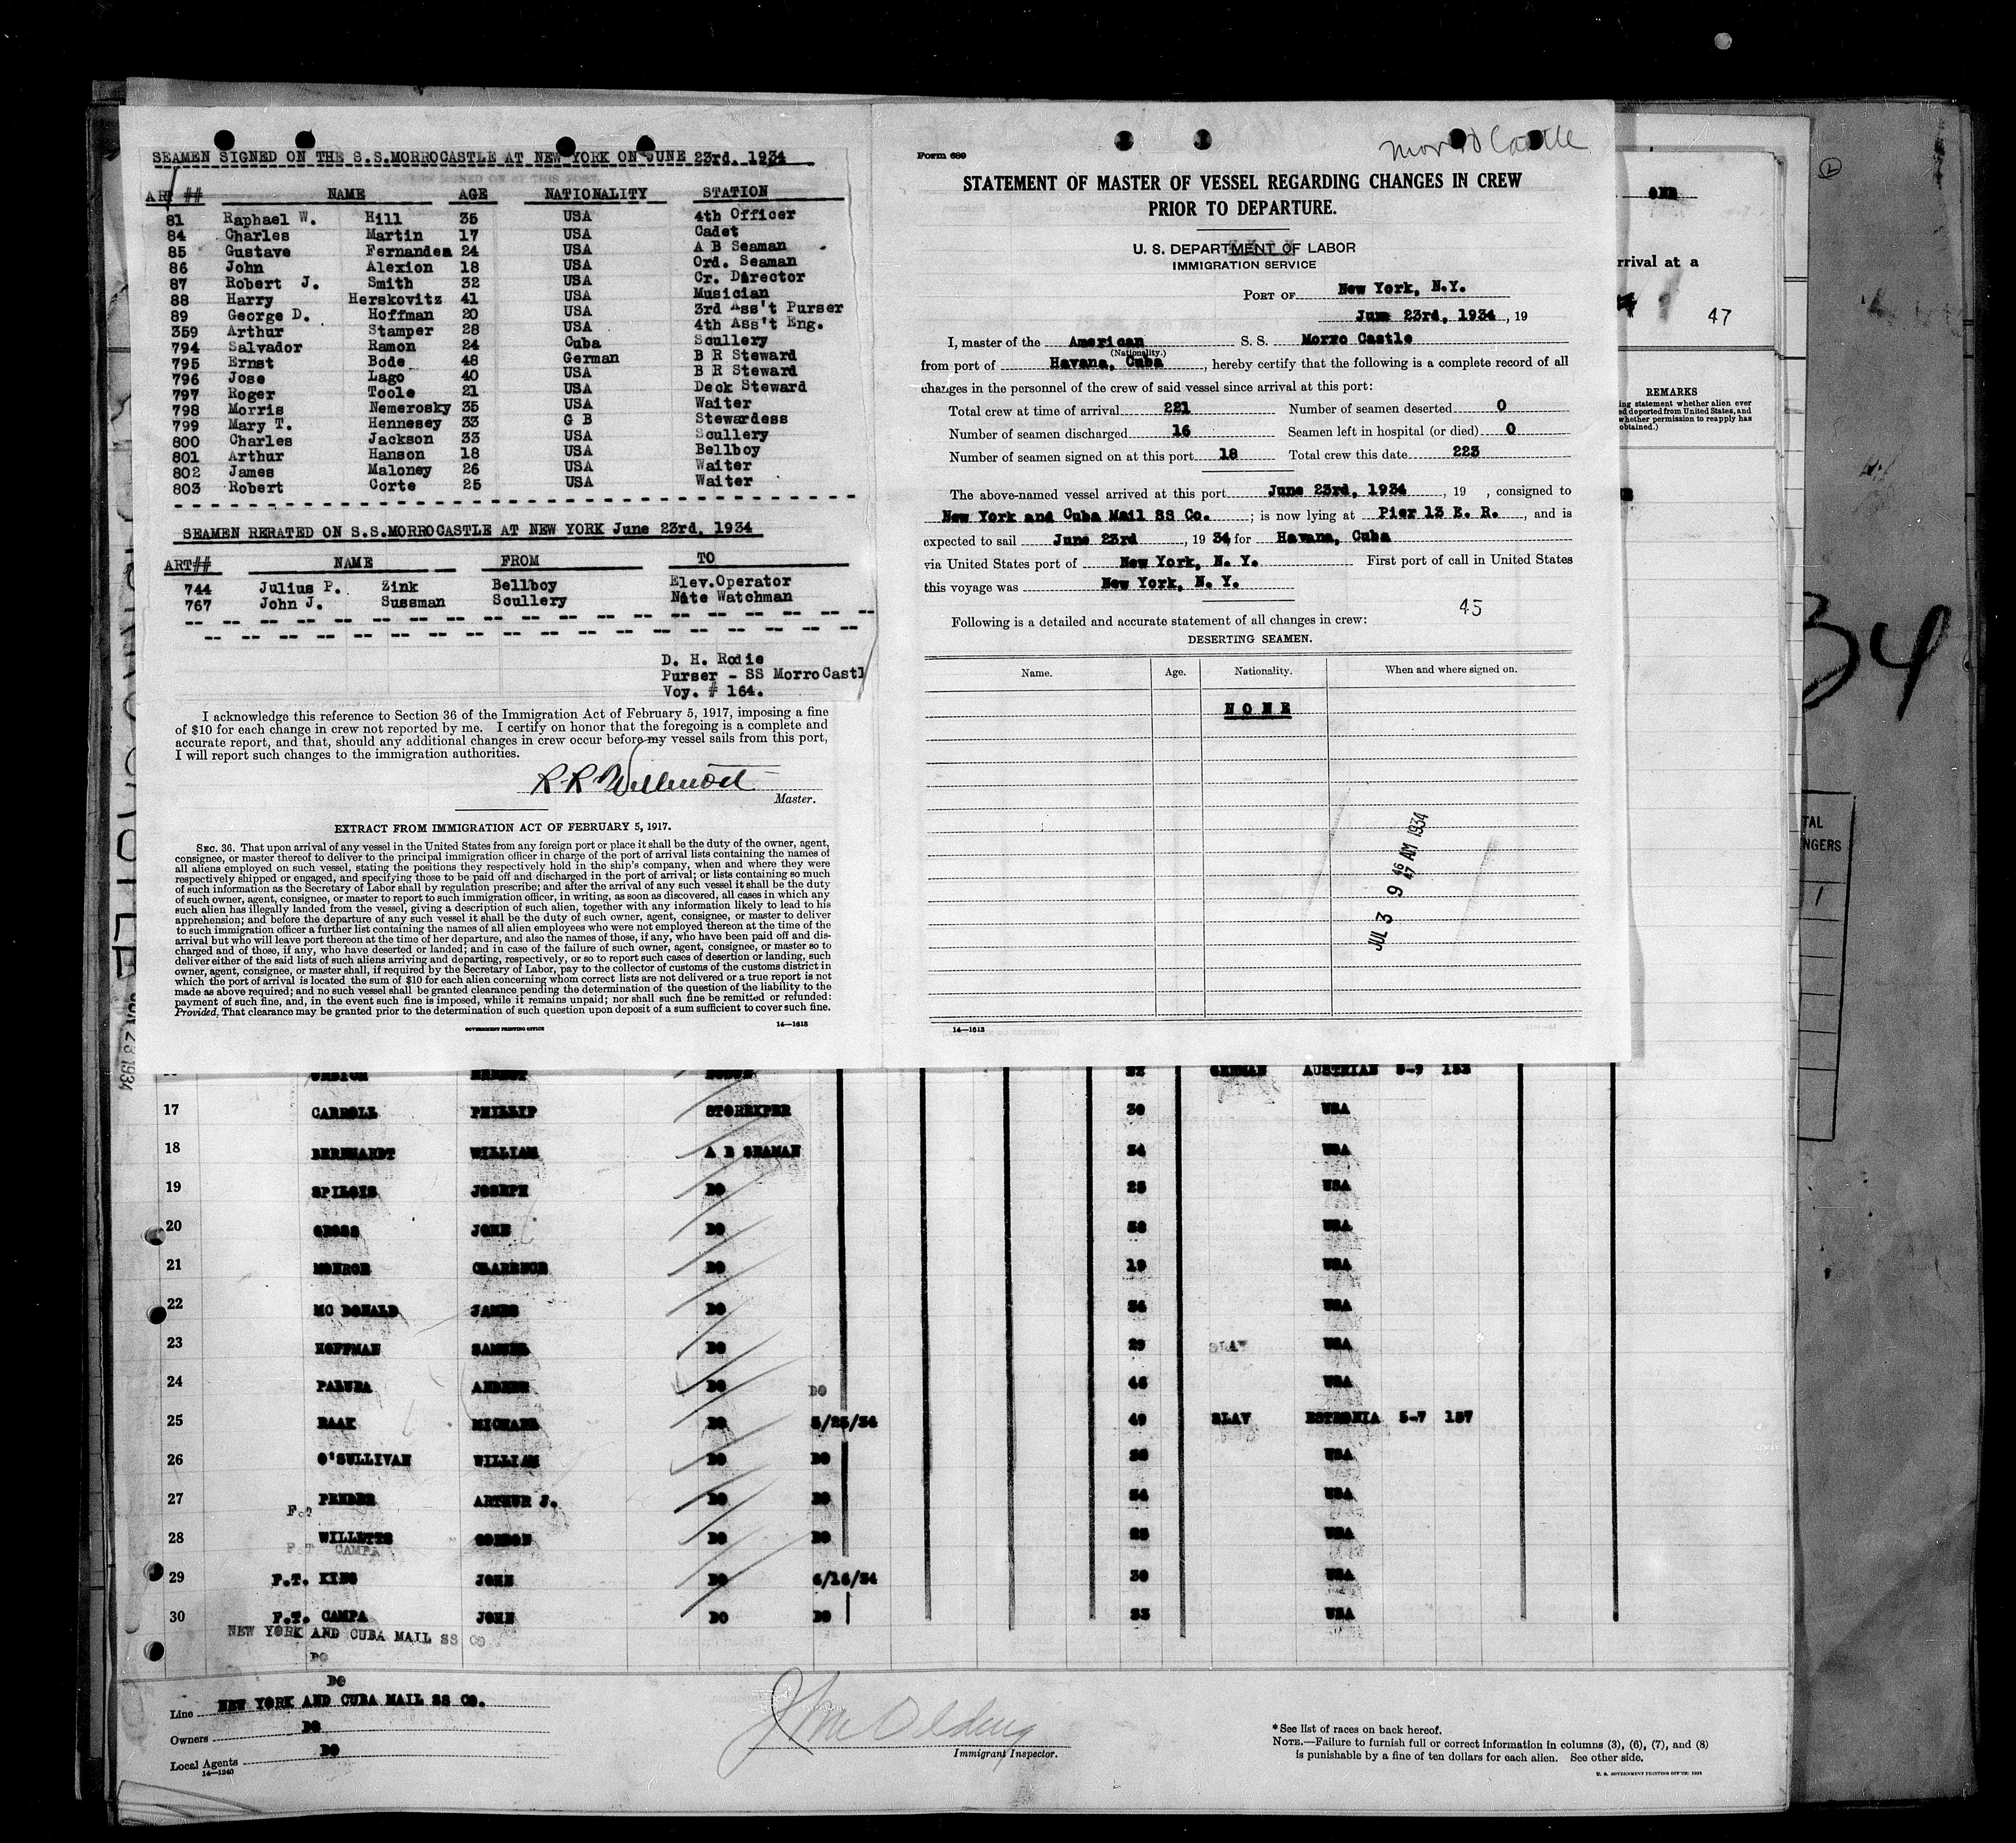 SEAMEN SIGNED ON THE S.S.MORROCASTLE AT NEW YORK ON JUNE 23rd. 1934
ART ## NAME AGE NATIONALITY STATION
81 Raphael W. Hill 35 USA 4th Officer
84 Charles Martin 17 USA Cadet
85 Gustave Fernandea 24 USA A B Seaman
86 John Alexion 18 USA Ord. Seaman
87 Robert J. Smith 32 USA Cr. Director
88 Harry Herskovitz 41 USA Musician
89 George D. Hoffman 20 USA 3rd Ass't Purser
359 Arthur Stamper 28 USA 4th Ass't Eng.
794 Salvador Ramon 24 Cuba Scullery
795 Ernst Bode 48 German B R Steward
796 Jose Lago 40 USA B R Steward
797 Roger Toole 21 USA Deck Steward
798 Morris Nemerosky 35 USA Waiter
799 Mary T. Hennesey 33 G B Stewardess
800 Charles Jackson 33 USA Scullery
801 Arthur Hanson 18 USA Bellboy
802 James Maloney 26 USA Waiter
803 Robert Corte 25 USA Waiter
SEAMEN RERATED ON S.S.MORROCASTLE AT NEW YORK June 23rd, 1934
ART## NAME FROM TO
744 Julius P. Zink Bellboy Elev.Operator
767 John J. Sussman Scullery Nite Watchman
D. H. Rodie
Purser - SS MorroCastl
Voy. # 164.
I acknowledge this reference to Section 36 of the Immigration Act of February 5, 1917, imposing a fine
of $10 for each change in crew not reported by me. I certify on honor that the foregoing is a complete and
accurate report, and that, should any additional changes in crew occur before my vessel sails from this port,
I will report such changes to the immigration authorities.
R R Willmott
Master.
EXTRACT FROM IMMIGRATION ACT OF FEBRUARY 5, 1917.
SEC. 36. That upon arrival of any vessel in the United States from any foreign port or place it shall be the duty of the owner, agent,
consignee, or master thereof to deliver to the principal immigration officer in charge of the port of arrival lists containing the names of
all aliens employed on such vessel, stating the positions they respectively hold in the ship's company, when and where they were
respectively shipped or engaged, and specifying those to be paid off and discharged in the port of arrival; or lists containing so much
of such information as the Secretary of Labor shall by regulation prescribe; and after the arrival of any such vessel it shall be the duty
of such owner, agent, consignee, or master to report to such immigration officer, in writing, as soon as discovered, all cases in which any
such alien has illegally landed from the vessel, giving a description of such alien, together with any information likely to lead to his
apprehension; and before the departure of any such vessel it shall be the duty of such owner, agent, consignee, or master to deliver
to such immigration officer a further list containing the names of all alien employees who were not employed thereon at the time of the
arrival but who will leave port thereon at the time of her departure, and also the names of those, if any, who have been paid off and dis-
charged and of those, if any, who have deserted or landed; and in case of the failure of such owner, agent, consignee, or master so to
deliver either of the said lists of such aliens arriving and departing, respectively, or so to report such cases of desertion or landing, such
owner, agent, consignee, or master shall, if required by the Secretary of Labor, pay to the collector of customs of the customs district in
which the port of arrival is located the sum of $10 for each alien concerning whom correct lists are not delivered or a true report is not
made as above required; and no such vessel shall be granted clearance pending the determination of the question of the liability to the
payment of such fine, and, in the event such fine is imposed, while it remains unpaid; nor shall such fine be remitted or refunded:
Provided, That clearance may be granted prior to the determination of such question upon deposit of a sum sufficient to cover such fine.
GOVERNMENT PRINTING OFFICE 14—1613
Morro Castle
Form 689
STATEMENT OF MASTER OF VESSEL REGARDING CHANGES IN CREW
PRIOR TO DEPARTURE.
U. S. DEPARTMENT OF LABOR
IMMIGRATION SERVICE
PORT OF New York, N.Y.
June 23rd, 1934, 19
I, master of the American S. S. Morro Castle
(Nationality.)
from port of Havana, Cuba, hereby certify that the following is a complete record of all
changes in the personnel of the crew of said vessel since arrival at this port:
Total crew at time of arrival 221 Number of seamen deserted 0
Number of seamen discharged 16 Seamen left in hospital (or died) 0
Number of seamen signed on at this port 18 Total crew this date 223
The above-named vessel arrived at this port June 23rd, 1934, 19 , consigned to
New York and Cuba Mail SS Co. ; is now lying at Pier 13 E. R., and is
expected to sail June 23rd, 19 34 for Havana, Cuba
via United States port of New York, N. Y. First port of call in United States
this voyage was New York, N. Y.
45
Following is a detailed and accurate statement of all changes in crew:
DESERTING SEAMEN.
Name. Age. Nationality. When and where signed on.
NONE
JUL 3 9 AM 1934
14—1613
rrival at a
47
REMARKS
34
TAL
NGERS
1
JUN 23 1934
32 GERMAN AUSTRIAN 5-9 153
17 CARROLL PHILLIP STOREKPER 30 USA
18 BERNHARDT WILLIAM A B SEAMAN 34 USA
19 SPILGIS JOSEPH DO 25 USA
20 GROSS JOHN DO USA
21 MONROE CLARENCE DO 19 USA
22 MC DONALD JAMES DO 34 USA
23 HOFFMAN SAMUEL DO 29 USA
24 ANDREW DO DO 46 USA
25 RAAK MICHAEL DO 5/25/34 49 SLAV ESTHONIA 5-7 157
26 O'SULLIVAN WILLIAM DO DO USA
27 PENDER ARTHUR J. DO DO 34 USA
28 WILLETTS GORDON DO DO 25 USA
29 F.T. KING JOHN DO 6/16/34 30 USA
30 F.T. CAMPA JOHN DO DO 33 USA
NEW YORK AND CUBA MAIL SS CO
DO
DO
Line NEW YORK AND CUBA MAIL SS CO.
Owners DO
Local Agents DO
14—1240
Immigrant Inspector.
*See list of races on back hereof.
NOTE.—Failure to furnish full or correct information in columns (3), (6), (7), and (8)
is punishable by a fine of ten dollars for each alien. See other side.